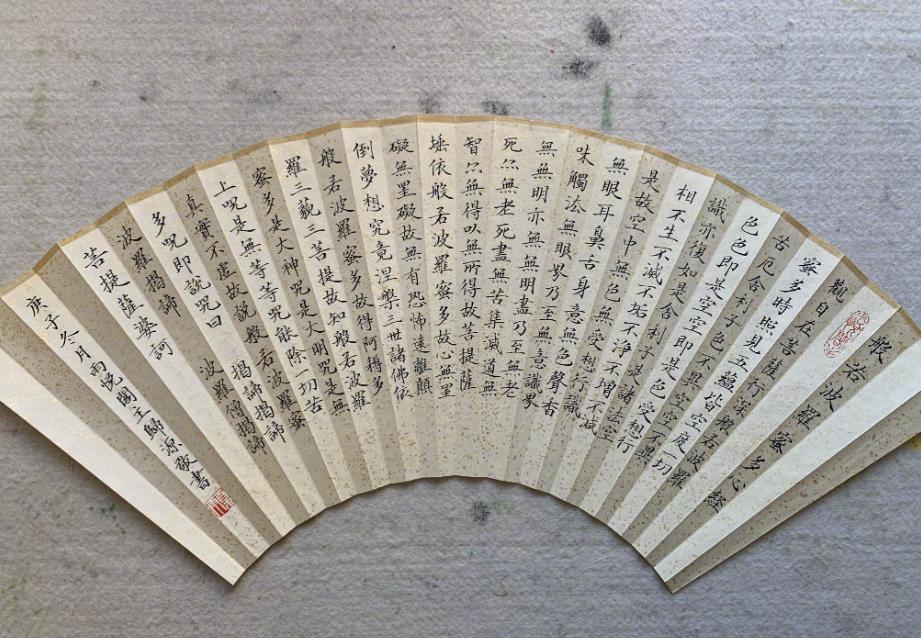 般若波羅蜜多心經
觀自在菩薩行深般若波羅
蜜多時照見五蘊皆空度一切
苦厄舍利子色不異空空不異
色色即是空空即是色受想行
識亦復如是舍利子是諸法空
相不生不滅不垢不淨不增不減
是故空中無色無受想行識
無眼耳鼻舌身意無色聲香
味觸法無眼界乃至無意識界
無無明亦無無明盡乃至無老
死亦無老死盡無苦集滅道無
智亦無得以無所得故菩提薩
埵依般若波羅蜜多故心無罣
礙無罣礙故無有恐怖遠離顛
倒夢想究竟涅槃三世諸佛依
般若波羅蜜多故得阿耨多
羅三藐三菩提故知般若波羅
蜜多是大神咒是大明咒是無
上咒是無等等咒能除一切苦
真實不虛故說般若波羅蜜
多咒即說咒曰 揭諦揭諦
波羅揭諦 波羅僧揭諦
菩提薩婆訶
庚子冬月雨悅閣主歸源敬書